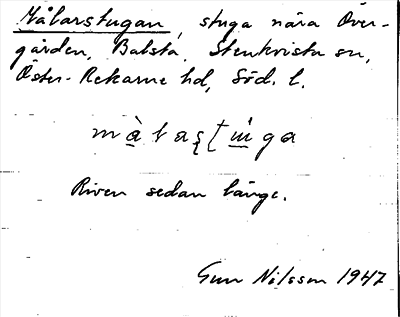 Målarstugan, stuga nära Över-
gården, Balsta, Stenkvista sn,
Öster-Rekarne hd, Söd. l.
Riven sedan länge.
Gun Nilsson 1947